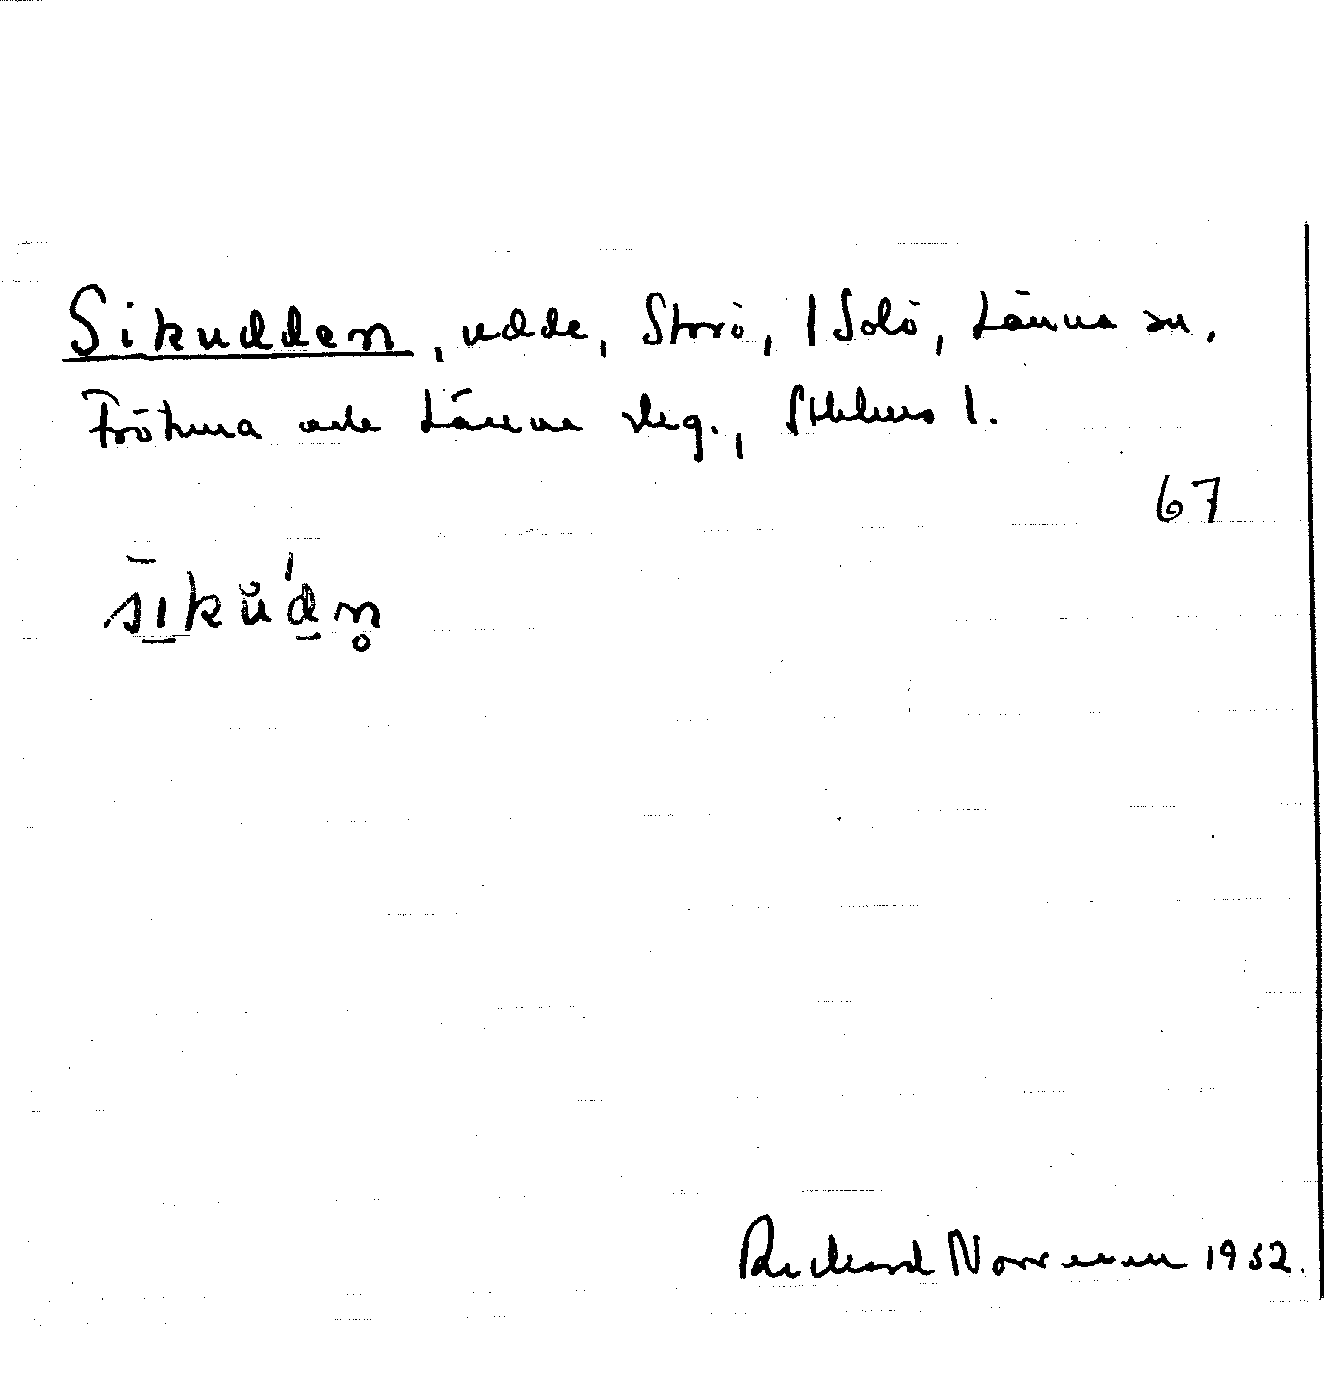 Sikudden, udde, Storö, 1 Solö, Länna sn,
Frötuna och Länna slg., Sthlms l.
67
sikùdn̥
Richard Norrenen 1952.